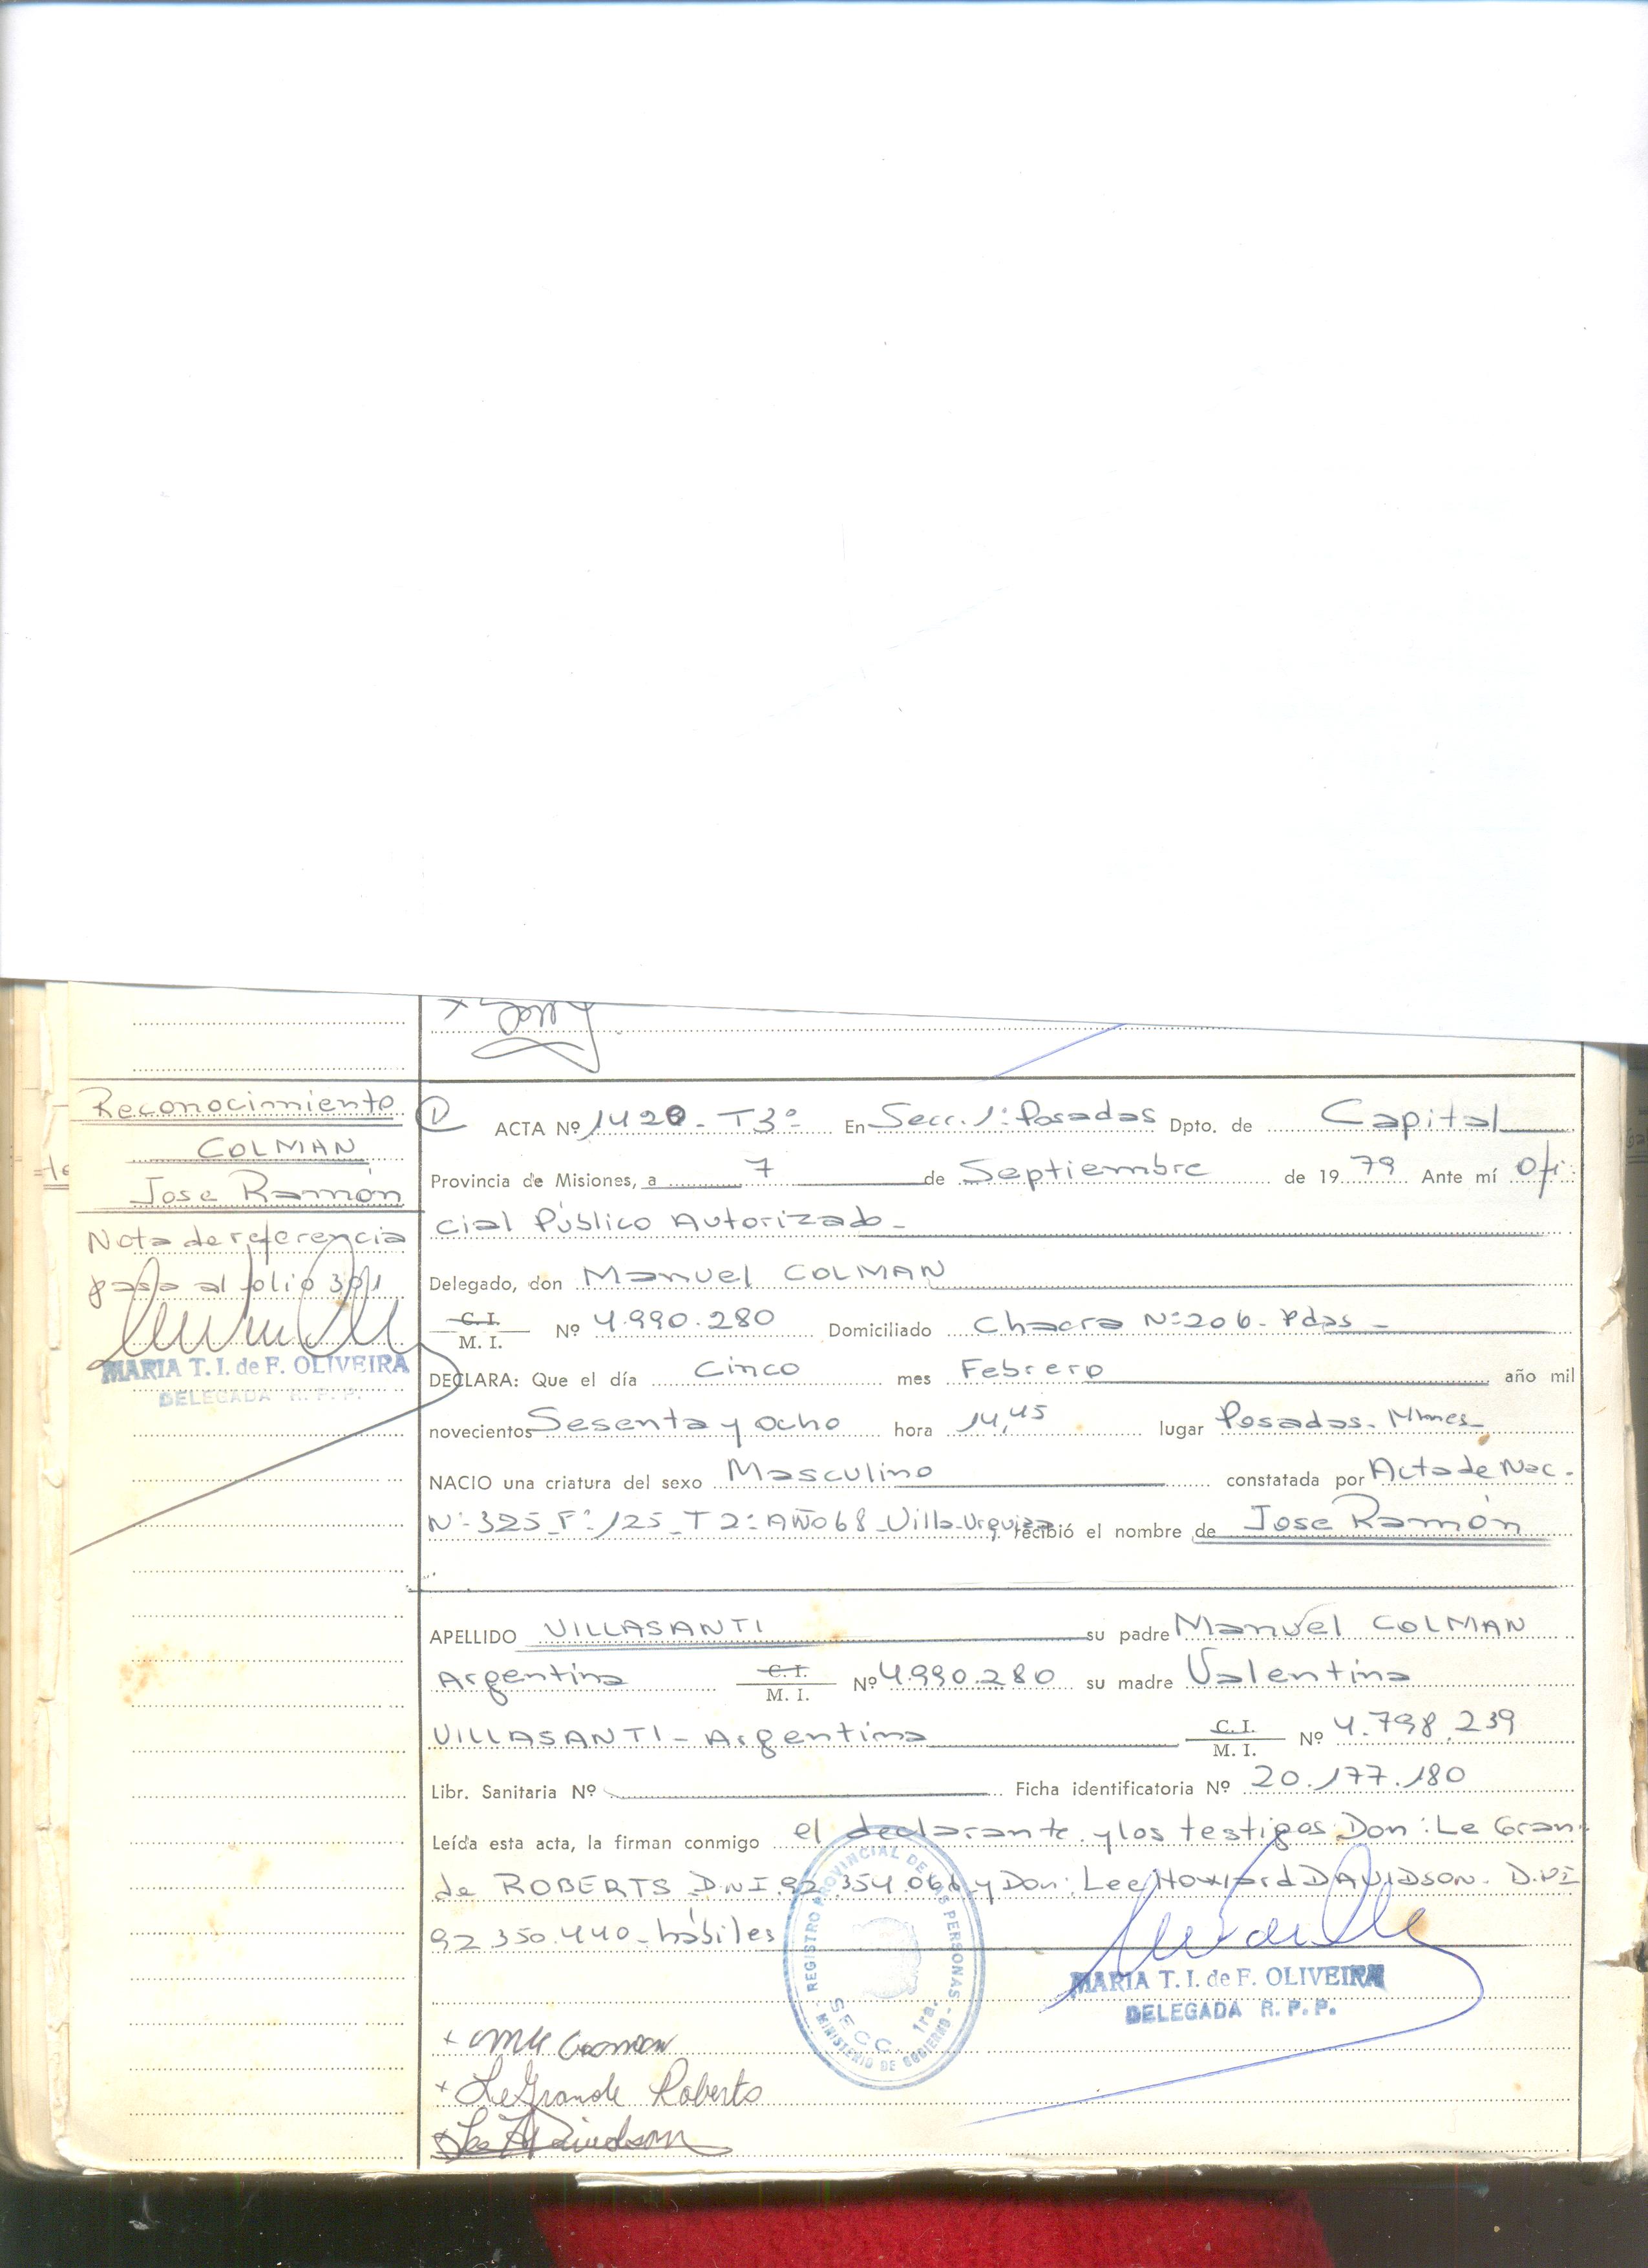 Reconocimiento
COLMAN
Jose Ramón
Nota de referencia
pasa al folio 301
MARIA T. I. de F. OLIVEIRA
DELEGADA R. P. P.
ACTA Nº 1420 - T3º En Secc. 1ª Posadas Dpto. de Capital
Provincia de Misiones, a 7 de Septiembre de 1979 Ante mí Ofi-
cial Público Autorizado -
Delegado, don Manuel COLMAN
C. I. M. I. Nº 4.990.280 Domiciliado Chacra Nº 206 - Pdas -
DECLARA: Que el día Cinco mes Febrero año mil
novecientos Sesenta y ocho hora 14,45 lugar Posadas - Mnes -
NACIO una criatura del sexo Masculino constatada por Acta de Nac.
Nº 325 - Fº 125 - T 2º AÑO 68 - Villa Urquiza, recibió el nombre de Jose Ramón
APELLIDO VILLASANTI su padre Manuel COLMAN
Argentina C. I. M. I. Nº 4.990.280 su madre Valentina
VILLASANTI - Argentina C. I. M. I. Nº 4.798.239
Libr. Sanitaria Nº Ficha identificatoria Nº 20.177.180
Leída esta acta, la firman conmigo el declarante y los testigos Don: Le Gran-
de ROBERTS D.N.I. 92.354.066 y Don: Lee Howard DAVIDSON - D.N.I
92.350.440 - hábiles
REGISTRO PROVINCIAL DE LAS PERSONAS - MINISTERIO DE GOBIERNO -
SECC. 1ra.
MARIA T. I. de F. OLIVEIRA
DELEGADA R. P. P.
+ LeGrande Roberts
+ Lee H Davidson